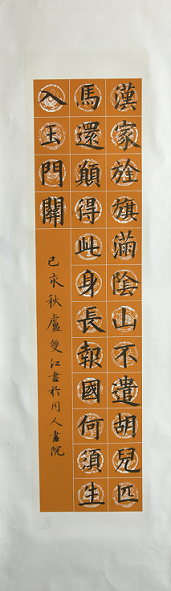 漢家旌旗滿陰山不遣胡兒匹
馬還願得此身長報國何須生
入玉門關
己亥秋盧雙江書於同人書院